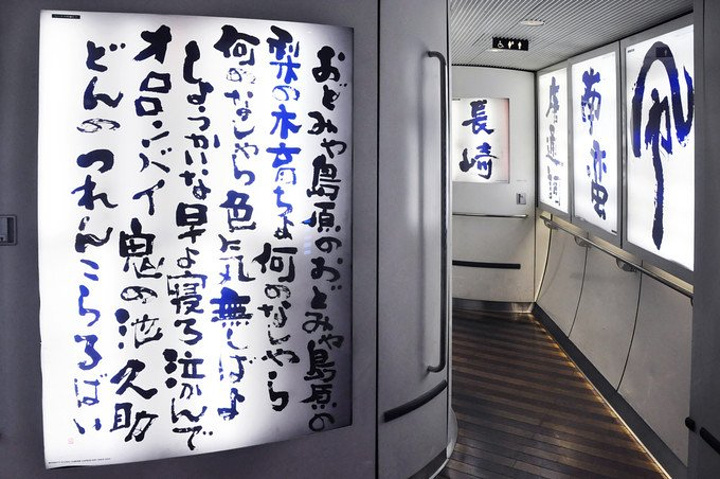 おどみや島原のおどみや島原の
梨の木育ちよ何のなしやら
何のなしやら色気無しばよ
しょうかいな早よ寝ろ泣かんで
オロロンバイ鬼の池久助
どんのつれんこらるばい
長崎
風
南蛮